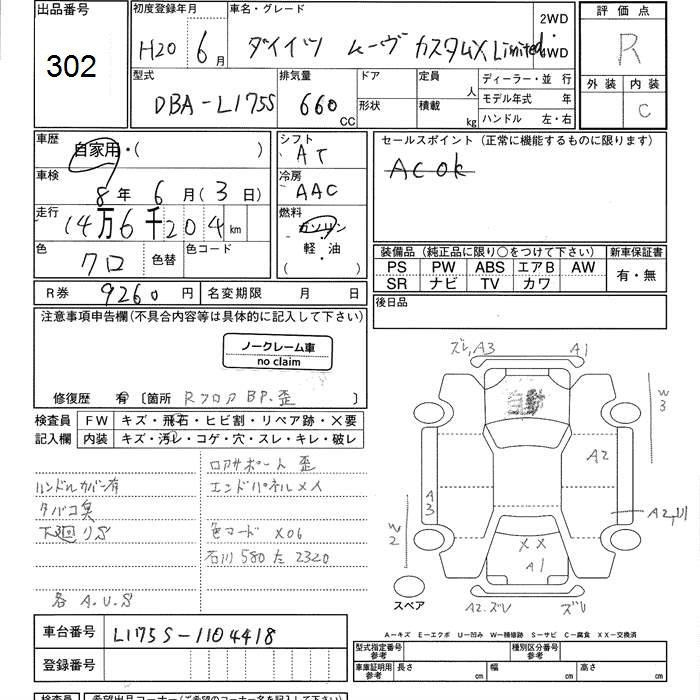 出品番号
302
初度登録年月
H20 6月
車名・グレード
ダイハツ ムーヴ カスタムX Limited
2WD
・
4WD
型式
DBA-L175S
排気量
660 CC
ドア
形状
定員 人
積載 kg
ディーラー・並 行
モデル年式 年
ハンドル 左・右
評価点
R
外装 内装
C
車歴
自家用・( )
車検
8年 6月(3日)
走行
14万6千204km
色
クロ
色替
色コード
シフト
AT
冷房
AAC
燃料
ガソリン
軽・油
( ・ )
セールスポイント (正常に機能するものに限ります)
ACOK
装備品 (純正品に限り○をつけて下さい)
PS PW ABS エアB AW
SR ナビ TV カワ
新車保証書
有・無
後日品
R券 9260円
名変期限 月 日
注意事項申告欄(不具合内容等は具体的に記入して下さい)
ノークレーム車
no claim
修復歴 有 [箇所 Rフロア BP.歪 ]
検査員 FW キズ・飛石・ヒビ割・リペア跡・X要
記入欄 内装 キズ・汚レ・コゲ・穴・スレ・キレ・破レ
ロアサポート歪
ハンドルカバー有
エンドパネルメイ
タバコ臭
下廻りS
色コード X06
石川 580 た 2320
各 A.U.S
ズレ,A3
A1
W3
A2
A3
A2,U1
W2
XX
A1
スペア
A2.ズレ
ズレ
A-キズ E-エクボ U-凹み W-補修跡 S-サビ C-腐食 XX-交換済
車台番号 L175S-1104418
登録番号
型式指定番号
参考
種別区分番号
参考
車庫証明用
参考
長さ cm 幅 cm 高さ cm
検査員 希望出品コーナー(ご希望のコーナー名を記入して下さい)